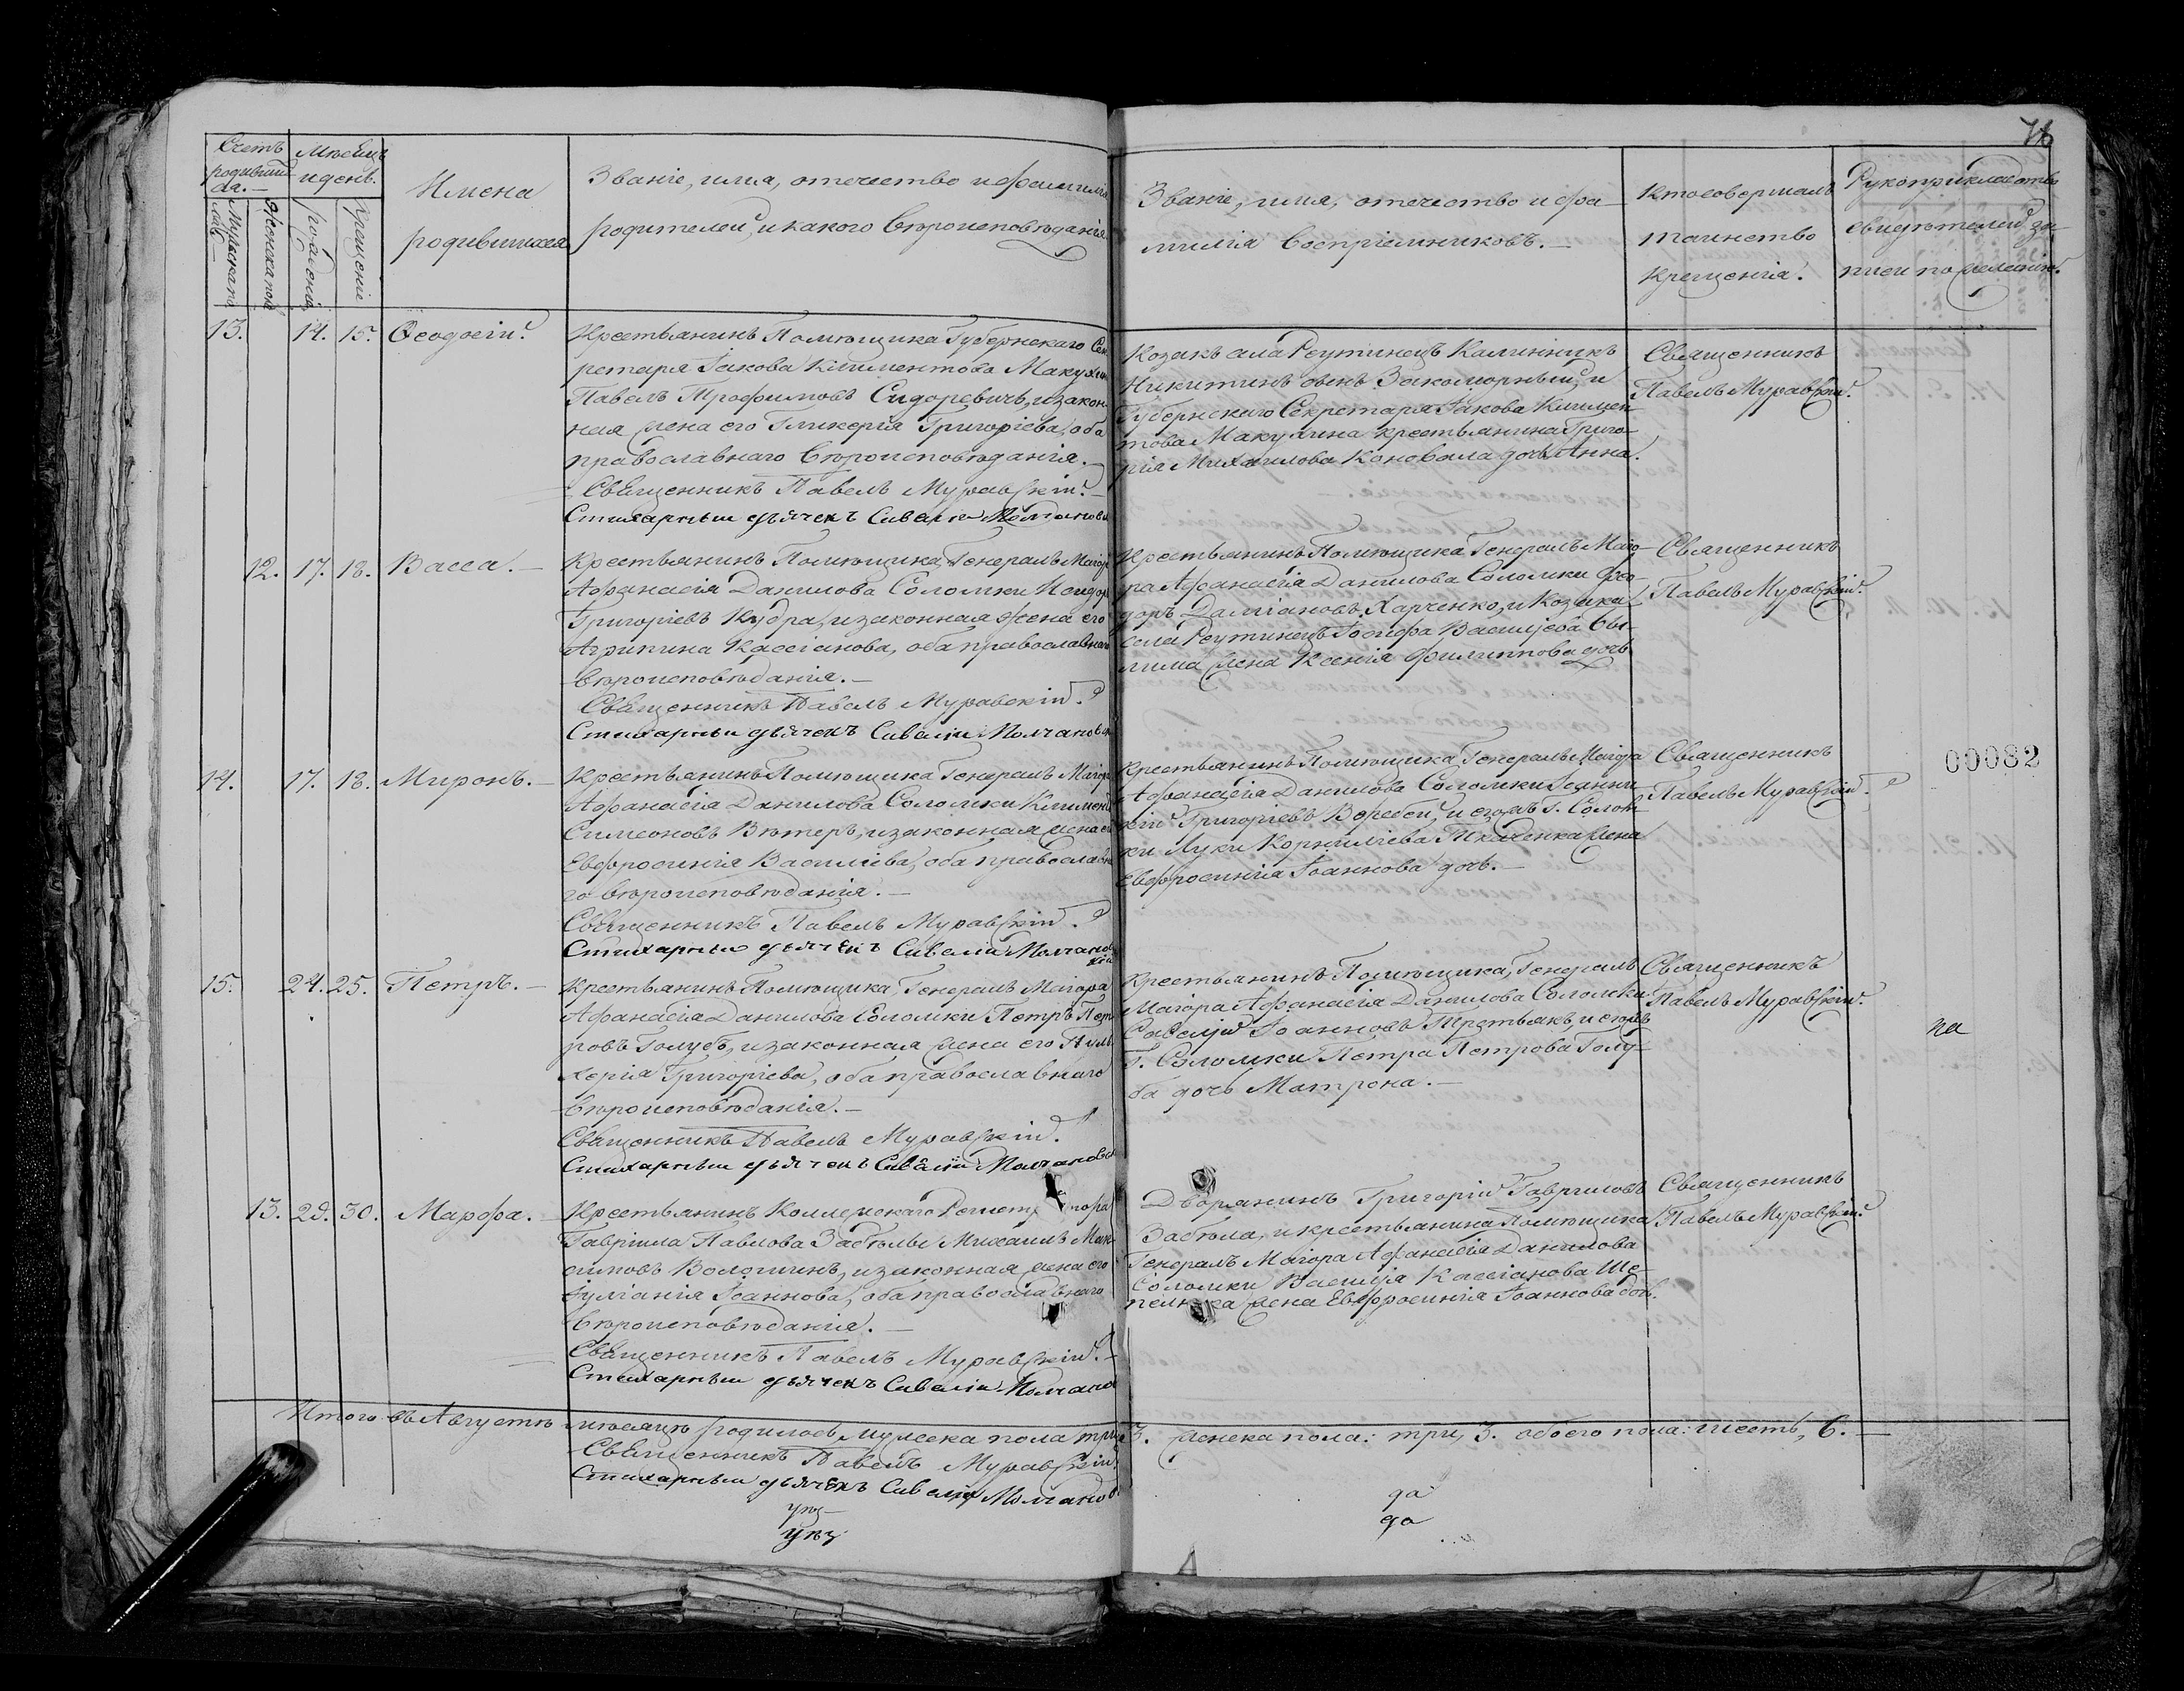 76
Счетъ родившихся.
Мѣсяцъ и день.
Имена родившихся
Званіе, имя, отечество и фамилія
родителей, и какого вѣроисповѣданія.
Званіе, имя, отечество и фа-
милія воспріемниковъ.
Кто совершалъ
таинство
крещенія.
Рукоприкладство
свидѣтелей за-
писи по желанію.
Мужеска пола
Женска пола
рожденія
крещеніе
13. 14. 15. Ѳеодосій.
Крестьянинъ Помѣщика Губернскаго Сек-
ретаря Іакова Климентова Макухина
Павелъ Трофимовъ Сидоревичь, и закон-
ная жена его Гликерія Григоріева, оба
православнаго вѣроисповѣданія.
Священникъ Павелъ Муравскій.
Стихарный дьячекъ Савелій
Козакъ села Реутинецъ Калинникъ
Никитинъ сынъ Закоморный, и
Губернскаго Секретаря Іакова Климен-
това Макухина крестьянина Григо-
рія Михайлова Коновала дочь Анна.
Священникъ
Павелъ Муравскій.
12. 17. 18. Васса.
Крестьянинъ Помѣщика Генералъ Маіора
Афанасія Данилова Соломки Исидоръ
Григоріевъ Кудра, и законная жена его
Агрипина Кассіанова, оба православнаго
вѣроисповѣданія.
Священникъ Павелъ Муравскій.
Стихарный дьячекъ Савелій Молчановск
Крестьянинъ Помѣщика Генералъ Маіо-
ра Афанасія Данилова Соломки Фео-
доръ Даміановъ Харченко, и Козака
села Реутинецъ Іосифа Васильева
жена Ксенія Филиппова дочь
Священникъ
Павелъ Муравскій.
14. 17. 18. Миронъ.
Крестьянинъ Помѣщика Генералъ Маіора
Афанасія Данилова Соломки Климентъ
Симеоновъ Вѣтеръ, и законная жена его
Евфросинія Василіева, оба православна-
го вѣроисповѣданія.
Священникъ Павелъ Муравскій.
Стихарный дьячекъ Савелій Молчановскій
Крестьянинъ Помѣщика Генералъ Маіора
Афанасія Данилова Соломки Іоанни-
кій Григоріевъ Воробей, и его жъ Г. Солом-
ки Луки Корниліева Ткаченка жена
Евфросинія Іоаннова дочь.
Священникъ
Павелъ Муравскій.
00082
15. 24. 25. Петръ.
Крестьянинъ Помѣщика, Генералъ Маіора
Афанасія Данилова Соломки Петръ Пет-
ровъ Голубъ, и законная жена его Пуль-
херія Григоріева, оба православнаго
вѣроисповѣданія.
Священникъ Павелъ Муравскій.
Стихарный дьячекъ Савелій Молчановск
Крестьянинъ Помѣщика, Генералъ
Маіора Афанасія Данилова Соломки
Савелій Іоанновъ Третьякъ, и его жъ
Г. Соломки Петра Петрова Голу-
ба дочь Матрона.
Священникъ
Павелъ Муравскій.
на
13. 29. 30. Марфа.
Крестьянинъ Коллежскаго Регистратора
Гавріила Павлова Забѣлы Михаилъ Мак-
симовъ Волошинъ, и законная жена его
Іуліанія Іоаннова, оба православнаго
вѣроисповѣданія.
Священникъ Павелъ Муравскій.
Стихарный дьячекъ Савелій Молчанов
Дворянинъ Григорій Гавриловъ
Забѣла, и крестьянина Помѣщика
Генералъ Маіора Афанасія Данилова
Соломки Василія Кассіанова Ше-
жена Евфросинія Іоаннова дочь.
Священникъ
Павелъ Муравскій.
Итого въ Августѣ мѣсяцѣ родилось мужеска пола три 3. женска пола: три, 3. обоего пола: шесть, 6.
Священникъ Павелъ Муравскій.
Стихарный дьячекъ Савелій Молчанов
уѣз
уѣз
да
да